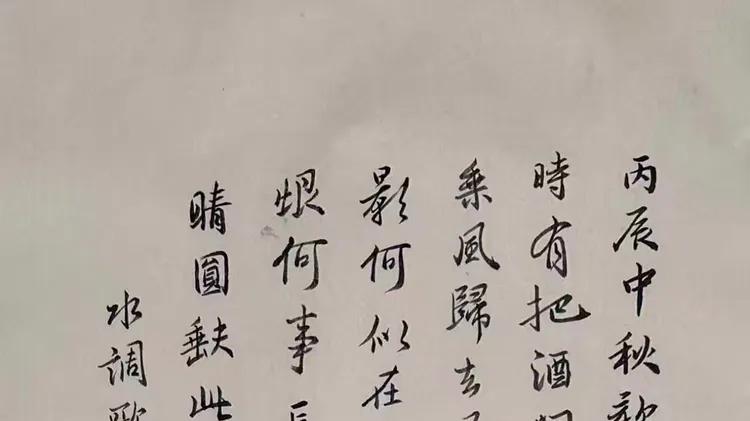 丙辰中秋
時有把酒
乘風歸去
影何似在
恨何事長
晴圓缺此
水調歌